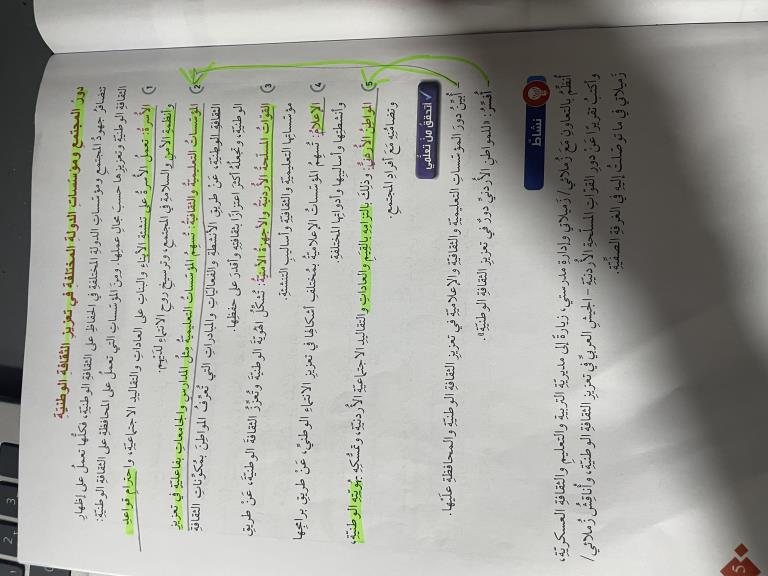 دورُ المجتمعِ ومؤسّساتِ الدولةِ المختلفةِ في تعزيزِ الثقافةِ الوطنيّةِ
تتضافرُ جهودُ المجتمعِ ومؤسّساتِ الدولةِ المختلفةِ في الحفاظِ على الثقافةِ الوطنيّةِ، فكلُّها تعملُ على إظهارِ
الثقافةِ الوطنيّةِ وتعزيزِها حسبَ مجالِ عملِها. ومِنَ المؤسّساتِ التي تعملُ على المحافظةِ على الثقافةِ الوطنيّةِ:
1 الأسرةُ: تعملُ الأسرةُ على تنشئةِ الأبناءِ والبناتِ على العاداتِ والتقاليدِ الاجتماعيّةِ، واحترامِ قواعدِ
وأنظمةِ الأمنِ والسلامةِ في المجتمعِ، وترسيخِ روحِ الانتماءِ لديْهِم.
2 المؤسّساتُ التعليميّةُ والثقافيّةُ: تُسهِمُ المؤسّساتُ التعليميّةُ مثلُ المدارسِ والجامعاتِ بفاعليّةٍ في تعزيزِ
الثقافةِ الوطنيّةِ، عَنْ طريقِ الأنشطةِ والفعاليّاتِ والمبادراتِ التي تُعرِّفُ المواطنَ بمكوّناتِ الثقافةِ
الوطنيّةِ، وتجعلُهُ أكثرَ اعتزازًا بثقافتِهِ وأقدرَ على حفظِها.
3 القوّاتُ المسلّحةُ الأردنيّةُ والأجهزةُ الأمنيّةُ: تُشكّلُ الهُويّةَ الوطنيّةَ وتُعزّزُ الثقافةَ الوطنيّةَ، عَنْ طريقِ
مؤسّساتِها التعليميّةِ والثقافيّةِ وأساليبِ التنشئةِ.
4 الإعلامُ: تُسهِمُ المؤسّساتُ الإعلاميّةُ بمختلفِ أشكالِها في تعزيزِ الانتماءِ الوطنيِّ، عَنْ طريقِ برامجِها
وأنشطتِها وأساليبِها وأدواتِها المختلفةِ.
5 المواطنُ الأردنيُّ: وذلكَ بالتزامِهِ بالقيمِ والعاداتِ والتقاليدِ الاجتماعيّةِ الأردنيّةِ، وتمسُّكِهِ بهُويّتِهِ الوطنيّةِ،
وتضامُنِهِ مَعَ أفرادِ المجتمعِ.
أتحقّقُ مِنْ تعلُّمي
- أُبيّنُ دورَ المؤسّساتِ التعليميّةِ والثقافيّةِ والإعلاميّةِ في تعزيزِ الثقافةِ الوطنيّةِ والمحافظةِ عليْها.
- أُفسِّرُ: «للمواطنِ الأردنيِّ دورٌ في تعزيزِ الثقافةِ الوطنيّةِ».
نشاطٌ
أُنظّمُ بالتعاونِ مَعَ زُملائي/ زَميلاتي وإدارةِ مدرستي، زيارةً إلى مديريّةِ التربيةِ والتعليمِ والثقافةِ العسكريّةِ،
وأكتبُ تقريرًا عَنْ دورِ القوّاتِ المسلّحةِ الأردنيّةِ - الجيشِ العربيِّ في تعزيزِ الثقافةِ الوطنيّةِ، وأُناقشُ زُملائي/
زَميلاتي في ما توصّلتُ إليْهِ في الغرفةِ الصفّيّةِ.
5